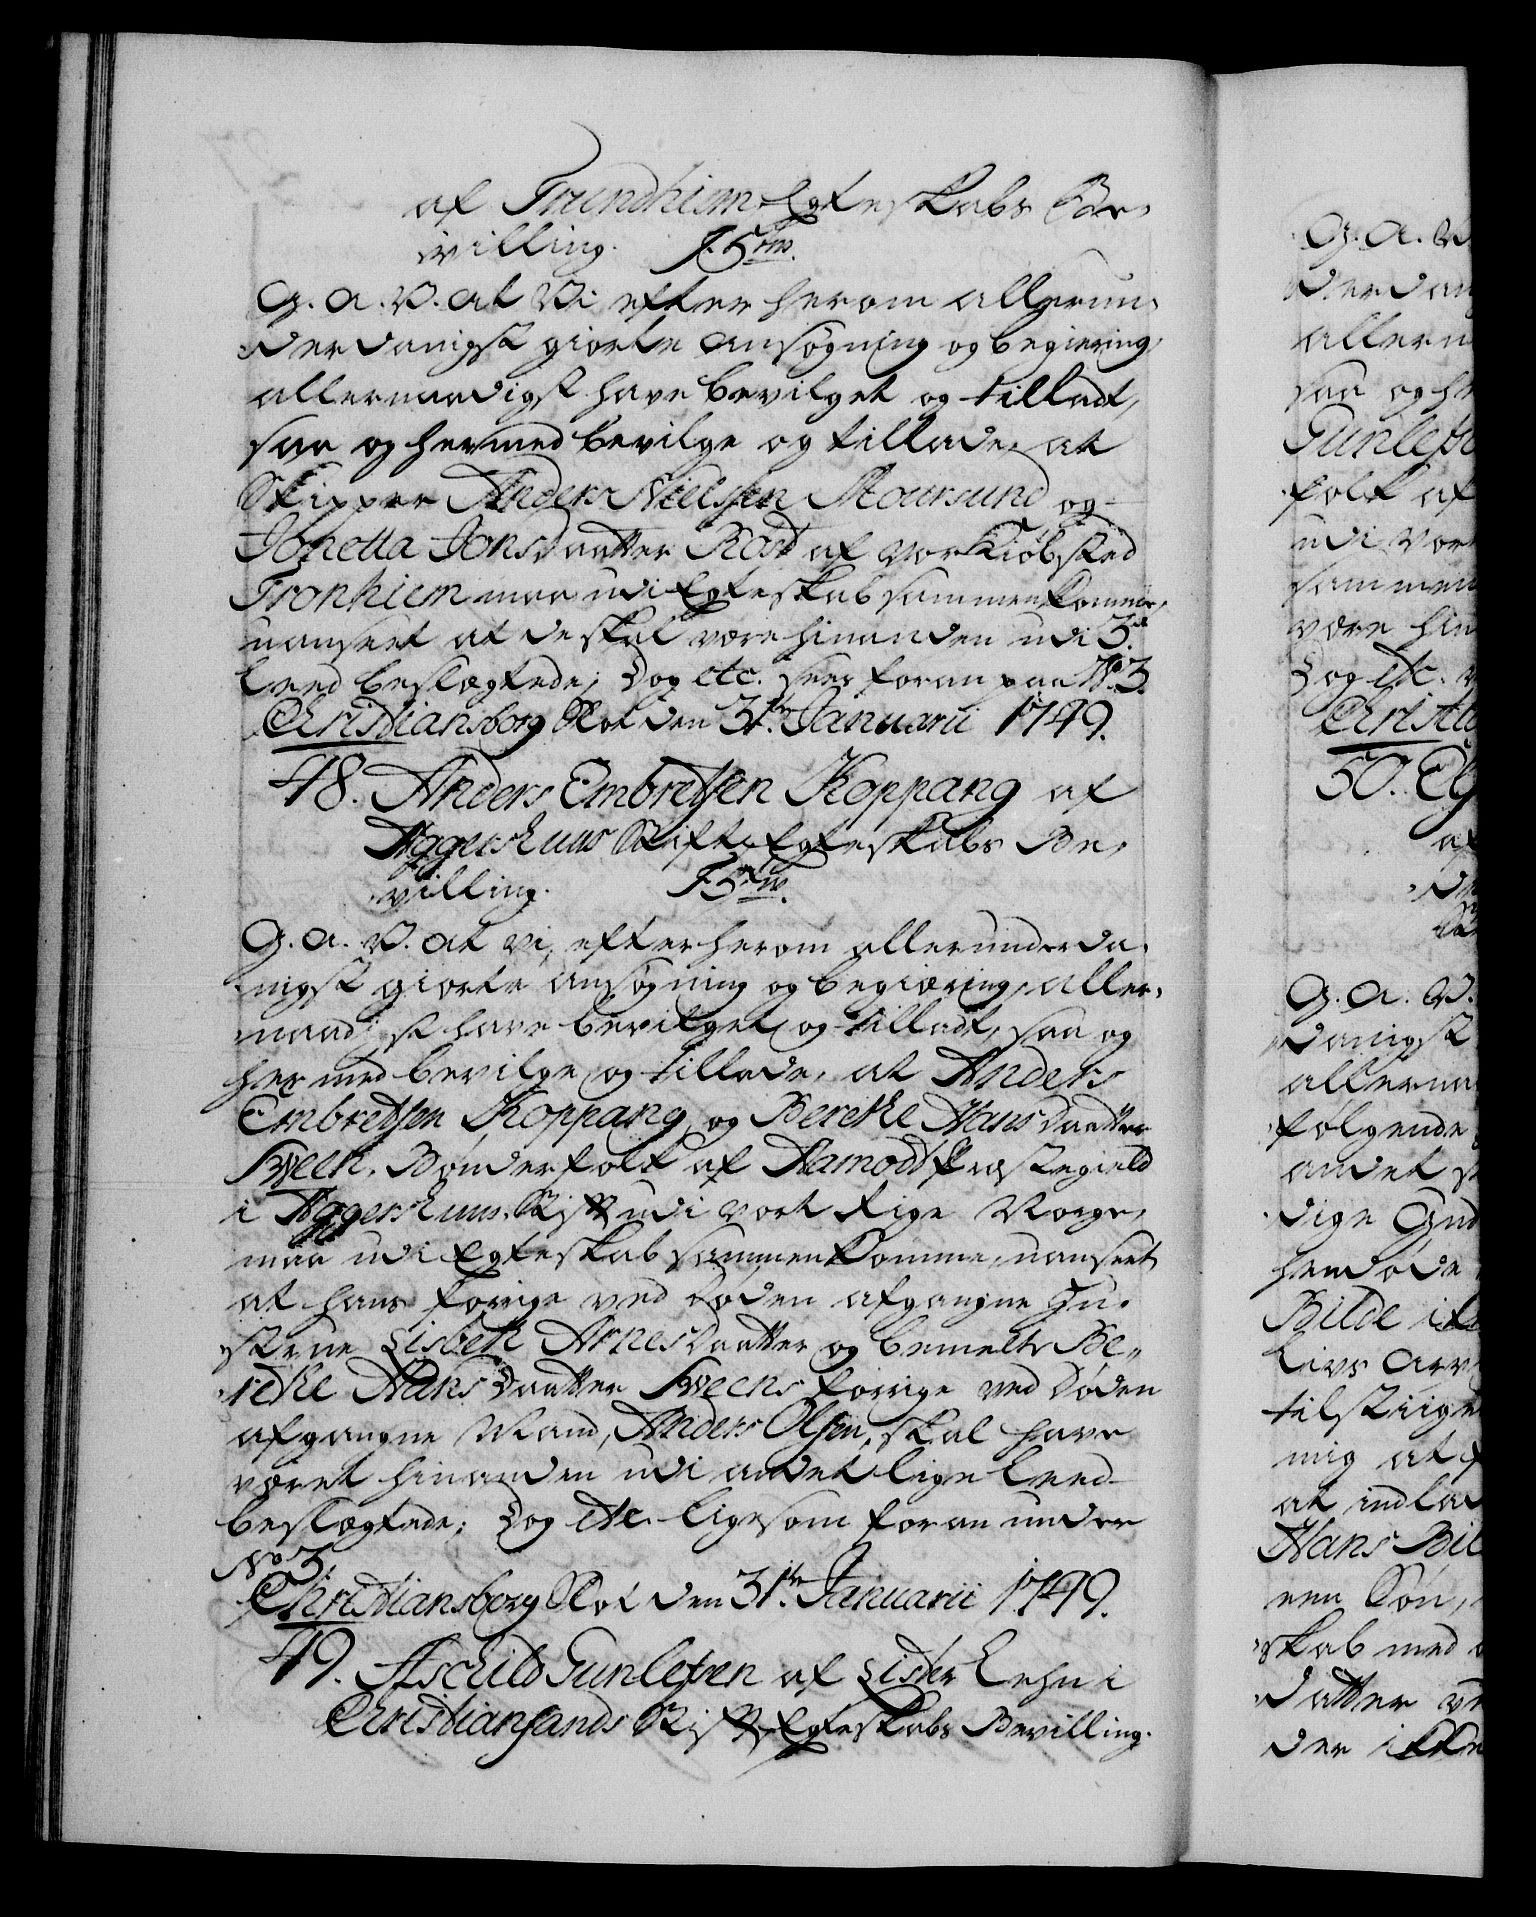 af Trundhiem Egteskabs Be-
villing. F. 5 rm.
G. A. V. at Vi efter herom allerun-
derdanigst giorte ansøgning og begiering,
allernaadigst have bevilget og tilladt,
saa og hermed bevilge og tillade, at
Skipper Anders Nielssen Moursund og
Jonetta Jonsdaatter Rost af vor Kiøbsted
Tronhiem maa udi Egteskab sammenkomme,
uanseet at de skal være hinanden udi 3de
Leed beslegtede; Dog etc. seer foran paa No 3.
Christiansborg Slot den 31te Januarii 1749.
48. Anders Embretssen Koppang af
Aggershuus Stift Egteskabs Be-
villing. F. 5 rm.
G. A. V. at vi, efter herom allerunderda-
nigst giorte ansøgning og begiæring, aller-
naadigst have bevilget og tilladt, saa og
hermed bevilge og tillade, at Anders
Embretssen Koppang og Berethe Hansdaatter
Sveen, Bønderfolk af Aamodt Præstegield
i Aggershuus Stift udi vort Rige Norge,
maa udi Egteskab sammenkomme, uanseet
at hans forrige ved Døden afgangne Hu-
strue Lisbeth Arnesdaatter og bemelte Be-
rethe Hansdaatter Sveens forrige ved Døden
afgangne Mand, Anders Olssen, skal have
været hinanden udi andet lige Leed
beslegtede; Dog etc. ligesom foran under
No 3.
Christiansborg Slot den 31te Januarii 1749.
49. Aschild Gunlefsen af Lister Lehn i
Christiansands Stift Egteskabs Bevilling.
G. A. V.
derdan
allern
saa og he
Gunlefs
folk af
udi vor
sammen
være hin
Dog etc.
Christia
50.
af
G. A. V.
danigst
allerna
følgende
andet
dige Gud
hendøde
Bilde
Livs arv
tilstiige
mig at
at indlad
Hans Bil
een Søn,
skab med
datter
der ikke